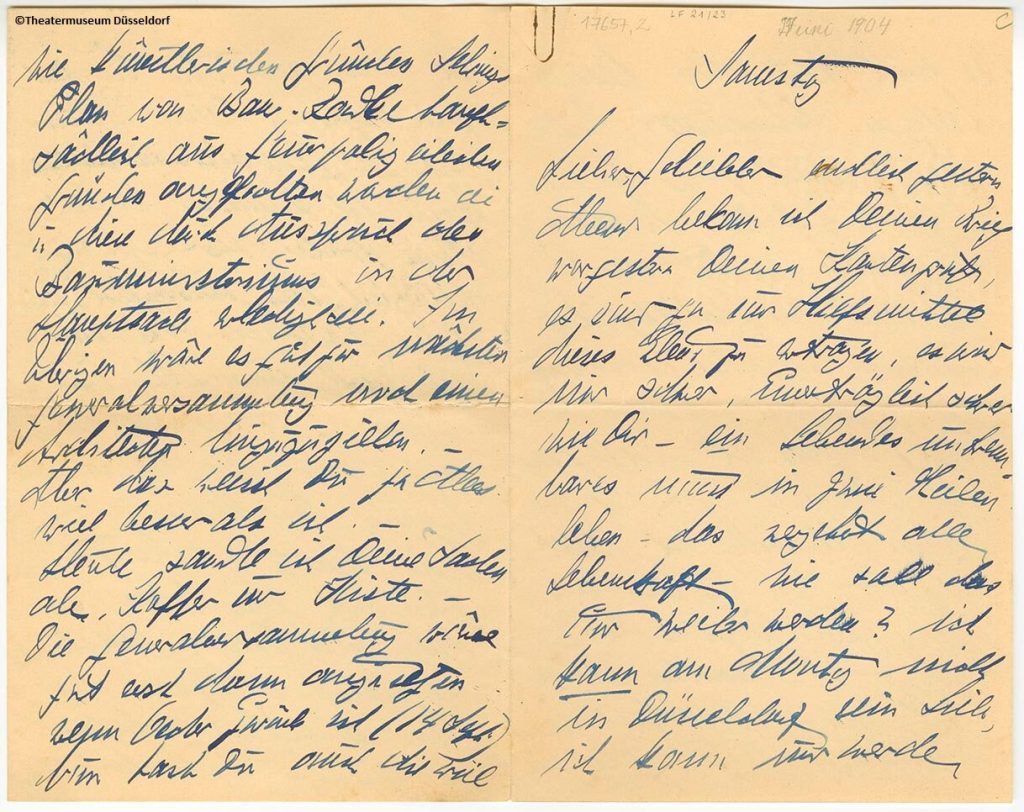 ©Theatermuseum Düsseldorf
17657,2
LF 21/23
1904
c
Samstag
Lieber, Geliebter endlich gestern
Abend bekam ich Deinen Brief
vorgestern Deinen Kartengruß,
es sind ja nur Hilfsmittel
dieses zu ertragen, es wird
mir schwer, unerträglich schwer
wie Dir – ein lebendes untrenn
bares muss in zwei Teilen
leben – das zerstört alle
Lebenskraft – wie soll das
nur weiter werden? ich
kann am Montag nicht
in Düsseldorf sein Lieb,
ich kann nur werde
die künstlerischen Gründe
Plan von Bau
sächlich aus feuerpolizeilichen
Gründen worden sei
u diese durch Ausspruch des
Bauministeriums in der
Hauptsache erledigt sei. Im
Übrigen wäre es gut zur nächsten
Generalversammlung noch einen
Architekten hinzuzuziehen. –
Aber das weisst Du ja Alles
viel besser als ich. –
Heute sandte ich Deine Sachen
ab, Koffer und Kiste. –
Die Generalversammlung
erst dann
wenn zurück ist (14
Nun hast Du auch die